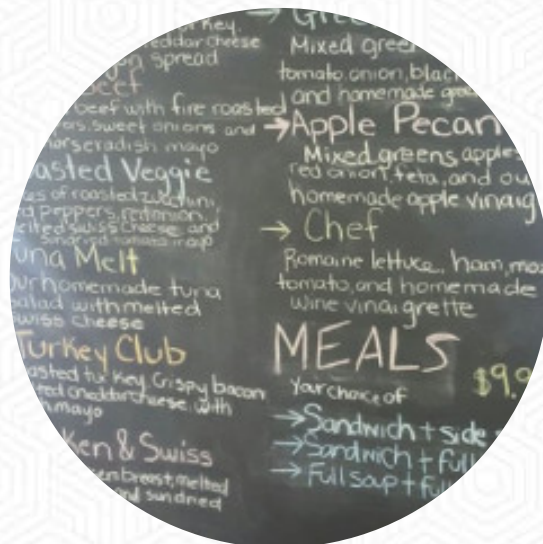 key,
cheddar cheese
spread
Beef
beef with fire roasted
sweet onions and
horseradish mayo
asted Veggie
of roasted zucchini,
peppers, red onion,
melted swiss cheese and
sundried tomato mayo
una Melt
ur homemade tuna
salad with melted
swiss cheese
Turkey Club
asted turkey, crispy bacon
ted cheddar cheese with
mayo
ken & Swiss
en breast, melted
and sundried
→ Gree
Mixed green
tomato, onion, black
and homemade
→ Apple Pecan
Mixed greens, apple
red onion, feta, and ou
homemade apple vinaig
→ Chef
Romaine lettuce, ham, moz
tomato, and homemade
wine vinaigrette
MEALS
Your choice of
$9.9
→ Sandwich + side
→ Sandwich + full
→ Full soup + full